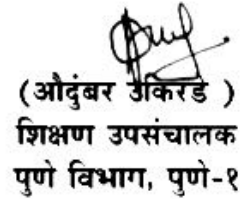 (औदुंबर उकिरडे )
शिक्षण उपसंचालक
पुणे विभाग, पुणे-१